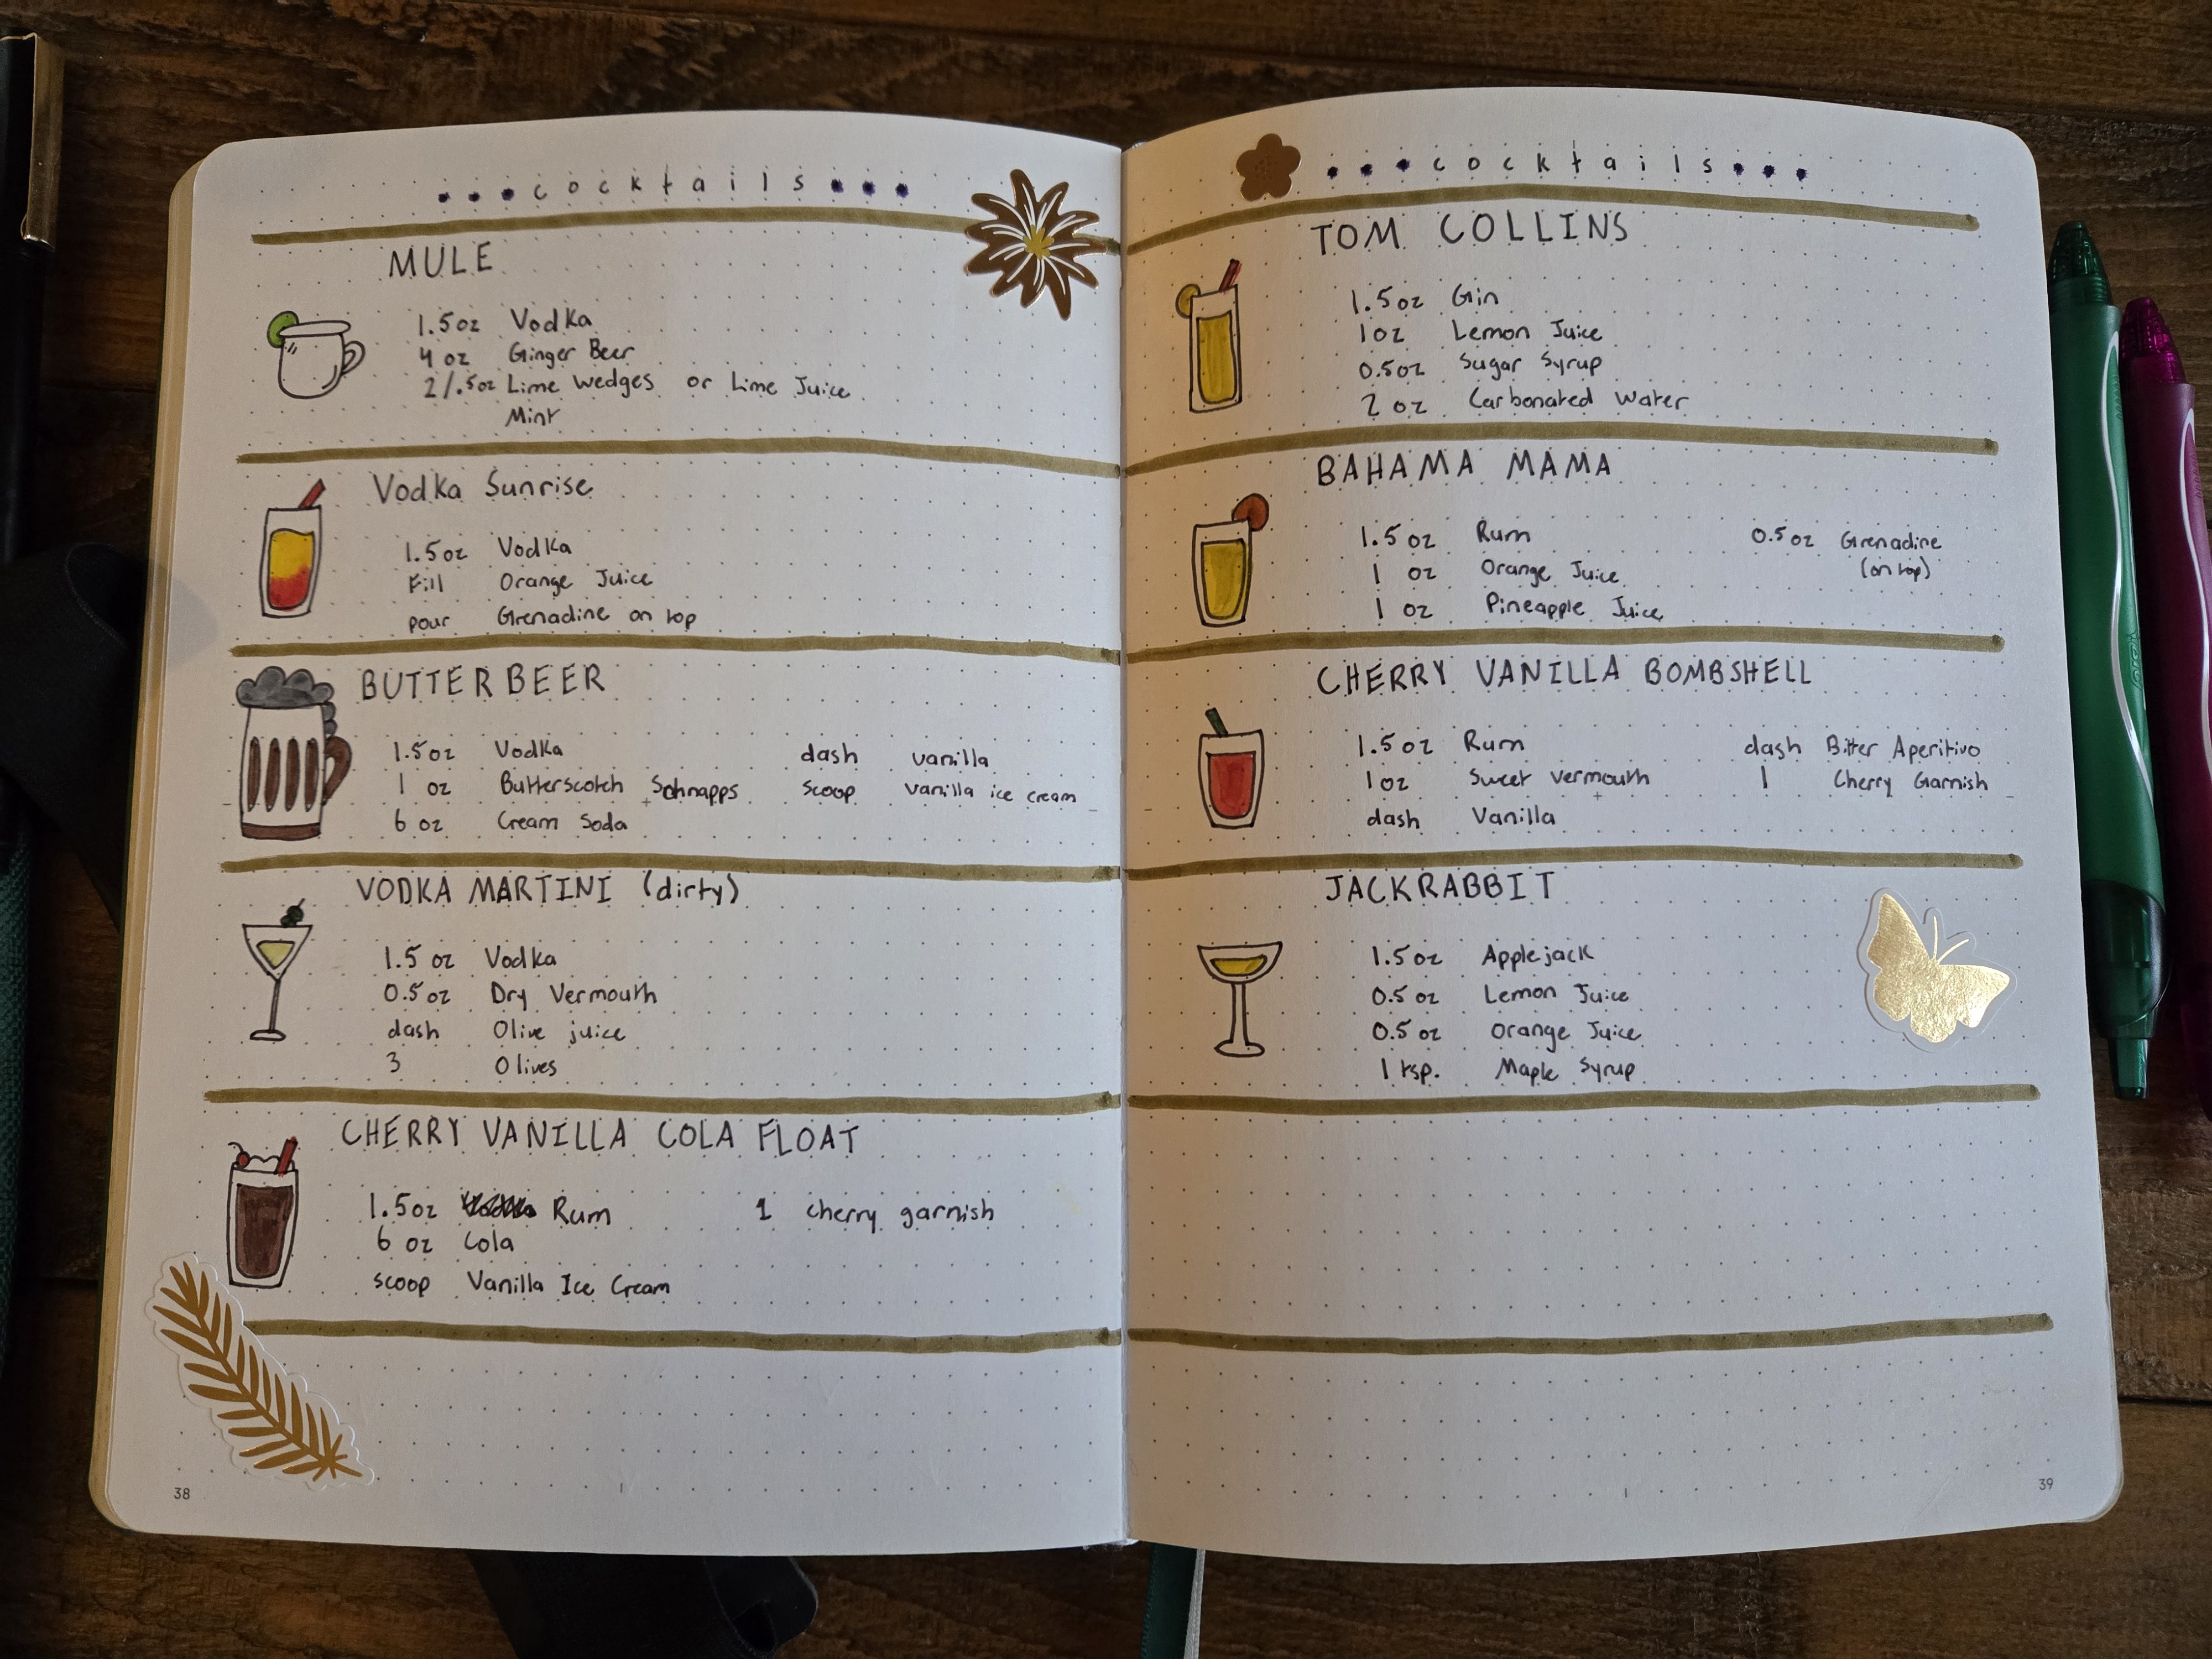 • • • cocktails • • •
MULE
1.5oz Vodka
4 oz Ginger Beer
2/.5oz Lime Wedges or Lime Juice
Mint
Vodka Sunrise
1.5oz Vodka
Fill Orange Juice
pour Grenadine on top
BUTTERBEER
1.5oz Vodka dash vanilla
1 oz Butterscotch Schnapps scoop vanilla ice cream
6 oz Cream Soda
VODKA MARTINI (dirty)
1.5 oz Vodka
0.5oz Dry Vermouth
dash Olive juice
3 Olives
CHERRY VANILLA COLA FLOAT
1.5oz Rum 1 cherry garnish
6 oz Cola
scoop Vanilla Ice Cream
38
• • • cocktails • • •
TOM COLLINS
1.5oz Gin
1oz Lemon Juice
0.5oz Sugar Syrup
2 oz Carbonated Water
BAHAMA MAMA
1.5 oz Rum 0.5oz Grenadine
1 oz Orange Juice (on top)
1 oz Pineapple Juice
CHERRY VANILLA BOMBSHELL
1.5oz Rum dash Bitter Aperitivo
1oz Sweet Vermouth 1 Cherry Garnish
dash Vanilla
JACKRABBIT
1.5oz Applejack
0.5 oz Lemon Juice
0.5 oz Orange Juice
1 tsp. Maple Syrup
39